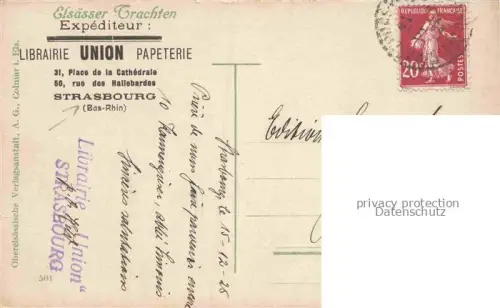 Elsässer Trachten
Expéditeur :
LIBRAIRIE UNION PAPETERIE
31, Place de la Cathédrale
50, rue des Hallebardes
STRASBOURG
(Bas-Rhin)
REPUBLIQUE FRANÇAISE
20
POSTES
Oberelsässische Verlagsanstalt, A. G., Colmar i. Els.
501
Librairie „Union“
STRASBOURG
Strasbourg, le 15-12-25
Prière de nous faire parvenir
10
salutations
Edition
privacy protection
oldthing.de